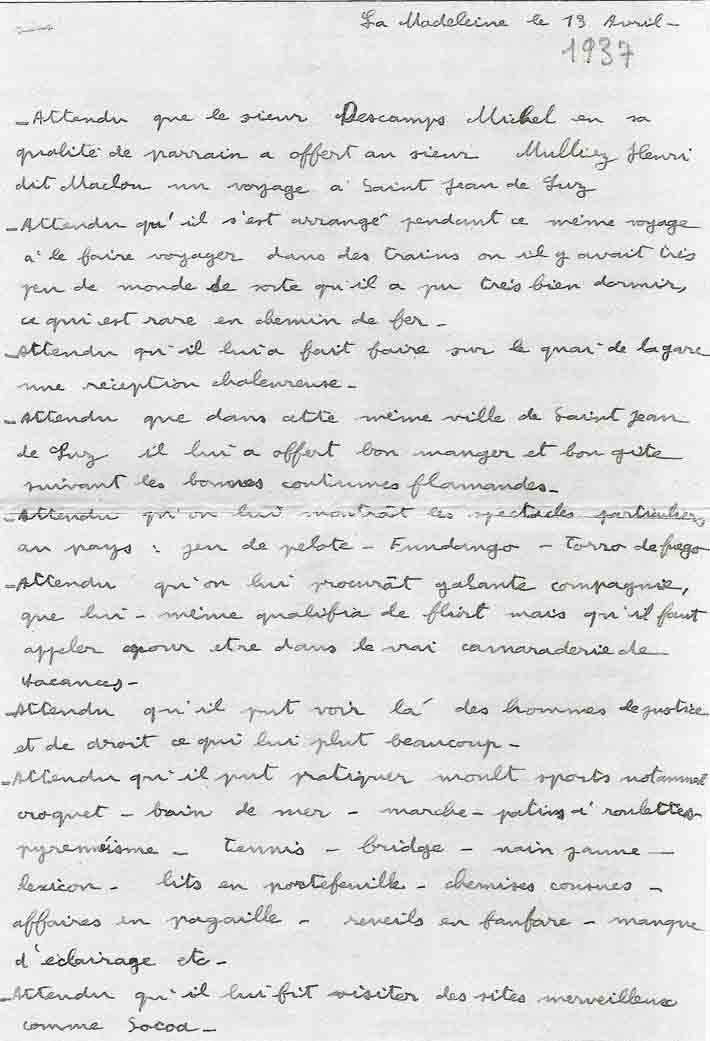 La Madeleine le 13 Avril -
1937
- Attendu que le sieur Descamps Michel en sa
qualité de parrain a offert au sieur Mulliez Henri
dit Maclou un voyage à Saint Jean de Luz
- Attendu qu'il s'est arrangé pendant ce même voyage
à le faire voyager dans des trains ou il y avait très
peu de monde de sorte qu'il a pu très bien dormir,
ce qui est rare en chemin de fer -
- Attendu qu'il lui a fait faire sur le quai de la gare
une réception chaleureuse -
- Attendu que dans cette même ville de Saint Jean
de Luz il lui a offert bon manger et bon gite
suivant les bonnes coutumes flamandes -
- Attendu qu'on lui montrât les spectacles particuliers
au pays : jeu de pelote - Fundango - Torro de fuego
- Attendu qu'on lui procurât galante compagnie,
que lui-même qualifia de flirt mais qu'il faut
appeler pour etre dans le vrai camaraderie de
vacances -
- Attendu qu'il put voir là des hommes de justice
et de droit ce qui lui plut beaucoup -
- Attendu qu'il put pratiquer moult sports notamment
croquet - bain de mer - marche - patins à roulettes -
pyreneisme - tennis - bridge - nain jaune -
lexicon - lits en portefeuille - chemises cousues -
affaires en pagaille - reveils en fanfare - manque
d'éclairage etc -
- Attendu qu'il lui fit visiter des sites merveilleux
comme Socoa -